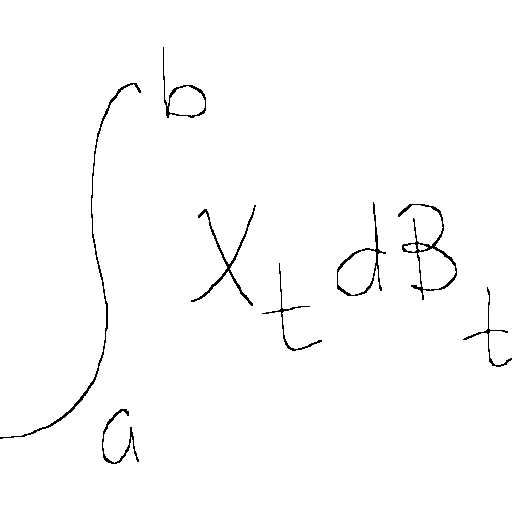 \int_a^b X_t dB_t